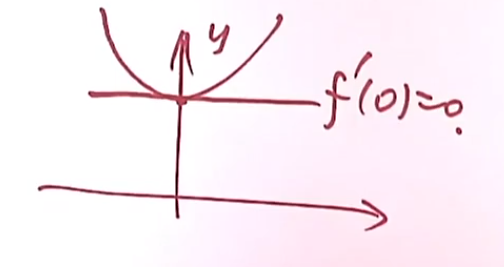 y
f'(0)=0.